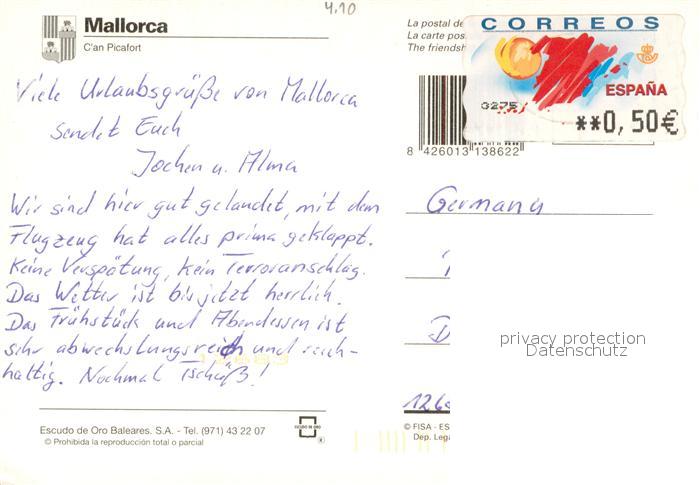 4.10
Mallorca
C'an Picafort
La postal de
La carte pos
The friendsh
CORREOS
ESPAÑA
3275
**0,50€
8 426013 138622
Viele Urlaubsgrüße von Mallorca
sendet Euch
Jochen u. Alma
Wir sind hier gut gelandet, mit dem
Flugzeug hat alles prima geklappt.
Keine Verspätung, kein Terroranschlag.
Das Wetter ist bis jetzt herrlich.
Das Frühstück und Abendessen ist
sehr abwechslungsreich und reich-
haltig. Nochmal Tschüß!
Germany
D
privacy protection
Datenschutz
126
Escudo de Oro Baleares. S.A. - Tel. (971) 43 22 07
© Prohibida la reproducción total o parcial
ESCUDO DE ORO
®
© FISA - ES
Dep. Lega